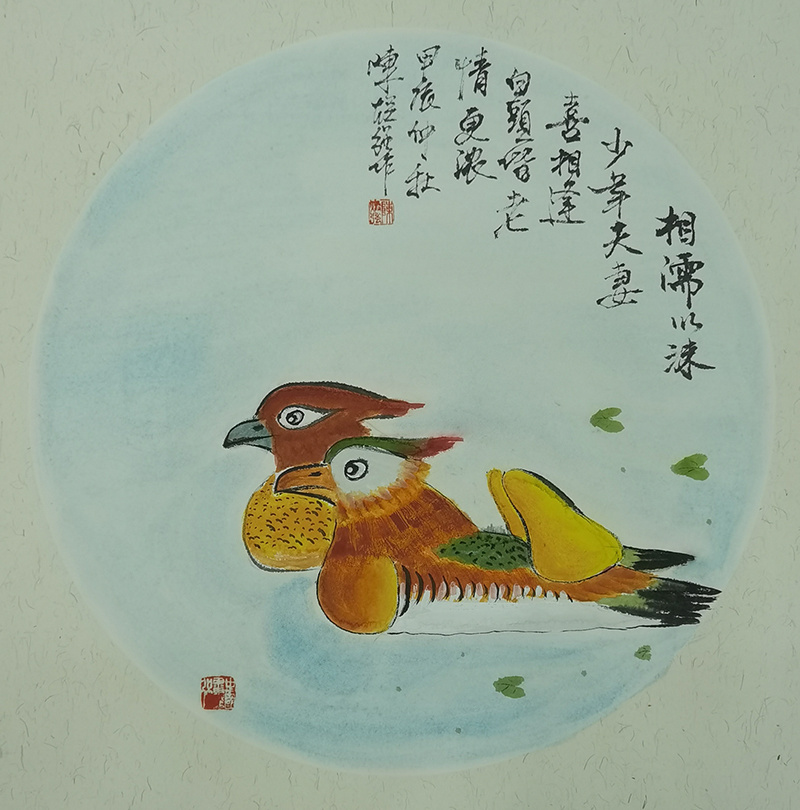 相濡以沫
少年夫妻
喜相逢
白頭皆老
情更濃
甲辰仲秋
陳